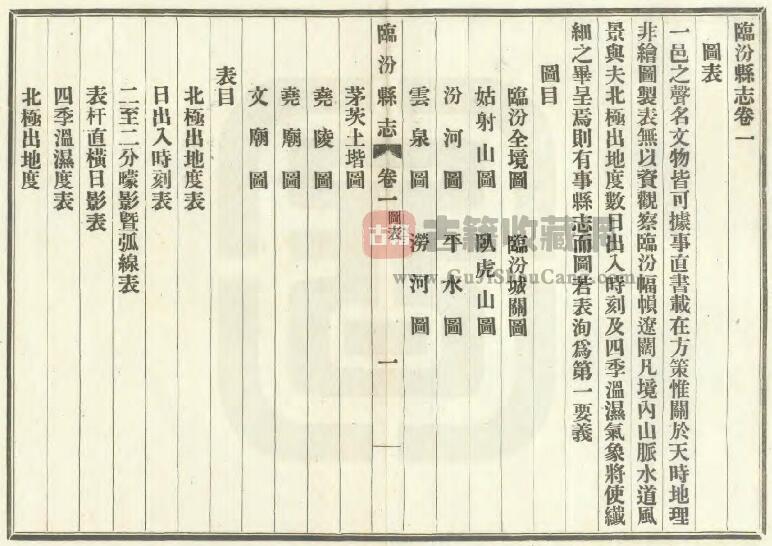 臨汾縣志卷一
圖表
一邑之聲名文物皆可據事直書載在方策惟關於天時地理
非繪圖製表無以資觀察臨汾幅幀遼闊凡境內山脈水道風
景與夫北極出地度數日出入時刻及四季溫濕氣象將使纖
細之畢呈焉則有事縣志而圖若表洵爲第一要義
圖目
臨汾全境圖 臨汾城關圖
姑射山圖 臥虎山圖
汾河圖 平水圖
雲泉圖 澇河圖
臨汾縣志 卷一 圖表 一
茅茨土堦圖
堯陵圖
堯廟圖
文廟圖
表目
北極出地度表
日出入時刻表
二至二分曚影暨弧線表
表杆直橫日影表
四季溫濕度表
北極出地度
古籍 古籍收藏网
www.GuJiShuCang.com